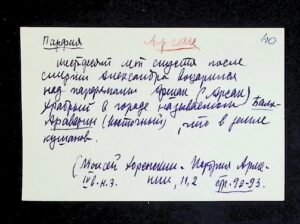 Парфия Арсак 40
шестьдесят лет спустя после
смерти Александра воцарился
над парфянами Аршак (Арсак)
Храбрый в городе называемом Бахл-
Аравадин (восточный), что в земле
кушанов.
(Моисей Хоренский. История Арме-
IV в. н.э. нии, II, 2 стр. 92-93.